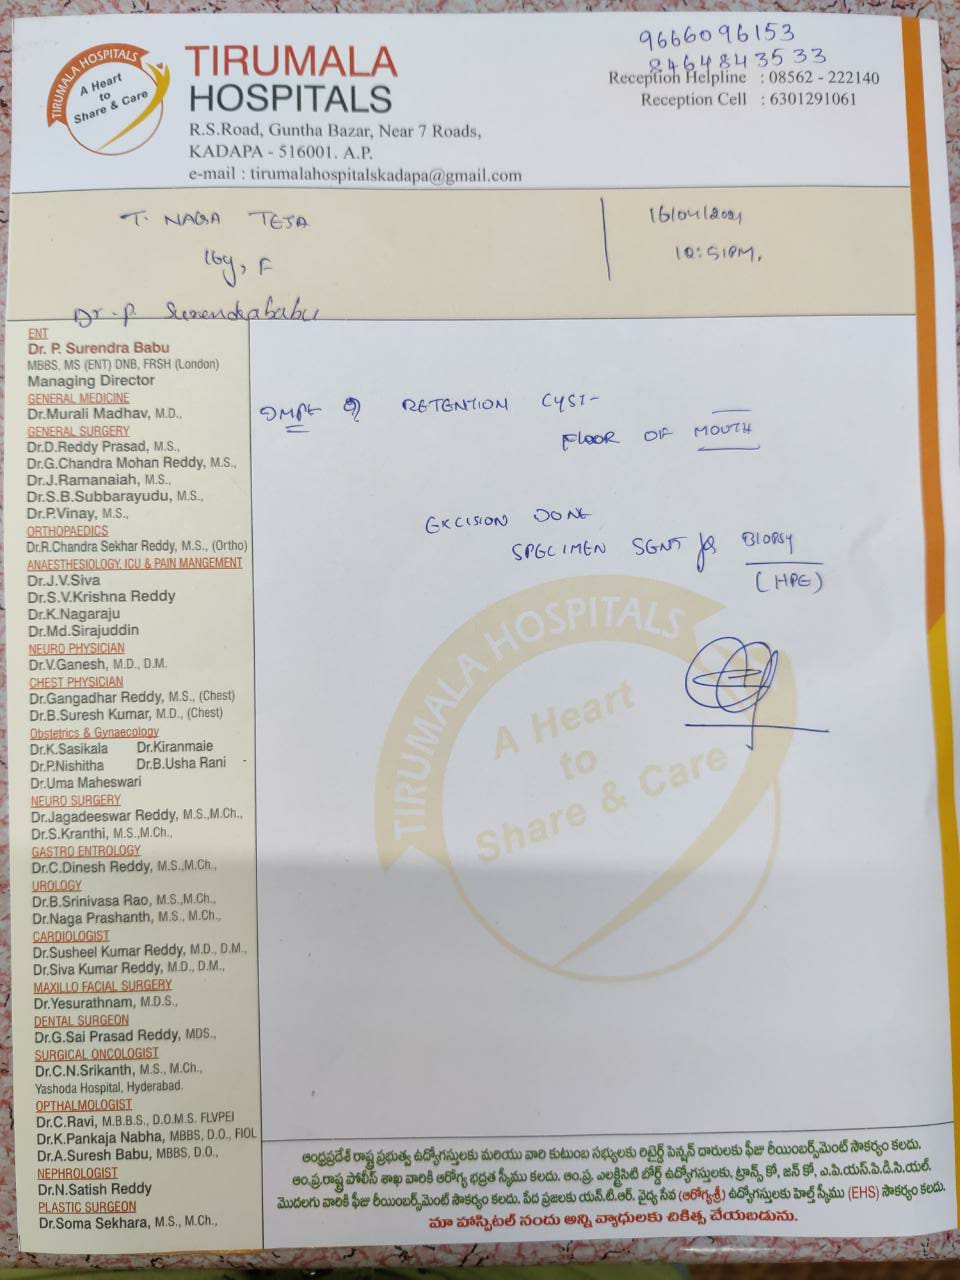 TIRUMALA HOSPITALS
A Heart
to
Share & Care
TIRUMALA
HOSPITALS
R.S.Road, Guntha Bazar, Near 7 Roads,
KADAPA - 516001. A.P.
e-mail : tirumalahospitalskadapa@gmail.com
9666096153
8464843533
Reception Helpline : 08562 - 222140
Reception Cell : 6301291061
T. NAGA TEJA
16y, F
Dr. P. Surendrababu
16/04/2021
12:51PM.
ENT
Dr. P. Surendra Babu
MBBS, MS (ENT) DNB, FRSH (London)
Managing Director
GENERAL MEDICINE
Dr.Murali Madhav, M.D.,
GENERAL SURGERY
Dr.D.Reddy Prasad, M.S.,
Dr.G.Chandra Mohan Reddy, M.S.,
Dr.J.Ramanaiah, M.S.,
Dr.S.B.Subbarayudu, M.S.,
Dr.P.Vinay, M.S.,
ORTHOPAEDICS
Dr.R.Chandra Sekhar Reddy, M.S., (Ortho)
ANAESTHESIOLOGY, ICU & PAIN MANGEMENT
Dr.J.V.Siva
Dr.S.V.Krishna Reddy
Dr.K.Nagaraju
Dr.Md.Sirajuddin
NEURO PHYSICIAN
Dr.V.Ganesh, M.D., D.M.
CHEST PHYSICIAN
Dr.Gangadhar Reddy, M.S., (Chest)
Dr.B.Suresh Kumar, M.D., (Chest)
Obstetrics & Gynaecology
Dr.K.Sasikala Dr.Kiranmaie
Dr.P.Nishitha Dr.B.Usha Rani
Dr.Uma Maheswari
NEURO SURGERY
Dr.Jagadeeswar Reddy, M.S.,M.Ch.,
Dr.S.Kranthi, M.S.,M.Ch.,
GASTRO ENTROLOGY
Dr.C.Dinesh Reddy, M.S.,M.Ch.,
UROLOGY
Dr.B.Srinivasa Rao, M.S.,M.Ch.,
Dr.Naga Prashanth, M.S., M.Ch.,
CARDIOLOGIST
Dr.Susheel Kumar Reddy, M.D., D.M.,
Dr.Siva Kumar Reddy, M.D., D.M.,
MAXILLO FACIAL SURGERY
Dr.Yesurathnam, M.D.S.,
DENTAL SURGEON
Dr.G.Sai Prasad Reddy, MDS.,
SURGICAL ONCOLOGIST
Dr.C.N.Srikanth, M.S., M.Ch.,
Yashoda Hospital, Hyderabad.
OPTHALMOLOGIST
Dr.C.Ravi, M.B.B.S., D.O.M.S. FLVPEI
Dr.K.Pankaja Nabha, MBBS, D.O., FIOL
Dr.A.Suresh Babu, MBBS, D.O.,
NEPHROLOGIST
Dr.N.Satish Reddy
PLASTIC SURGEON
Dr.Soma Sekhara, M.S., M.Ch.,
RETENTION CYST-
FLOOR OF MOUTH
EXCISION DONE
SPECIMEN SENT for BIOPSY
(HPE)
TIRUMALA HOSPITALS
A Heart
to
Share & Care
ఆంధ్రప్రదేశ్ రాష్ట్ర ప్రభుత్వ ఉద్యోగస్తులకు మరియు వారి కుటుంబ సభ్యులకు రిటైర్డ్ పెన్షన్ దారులకు ఫీజు రీయింబర్స్‌మెంట్ సౌకర్యం కలదు.
ఆం.ప్ర.రాష్ట్ర పోలీస్ శాఖ వారికి ఆరోగ్య భద్రత స్కీము కలదు. ఆం.ప్ర. ఎలక్ట్రిసిటి బోర్డ్ ఉద్యోగస్తులకు, ట్రాన్స్ కో, జన్ కో, ఎ.పి.యస్.పి.డి.సి.యల్.
మొదలగు వారికి ఫీజు రీయింబర్స్‌మెంట్ సౌకర్యం కలదు. పేద ప్రజలకు యన్.టి.ఆర్. వైద్య సేవ (ఆరోగ్యశ్రీ) ఉద్యోగస్తులకు హెల్త్ స్కీము (EHS) సౌకర్యం కలదు.
మా హాస్పిటల్ నందు అన్ని వ్యాధులకు చికిత్స చేయబడును.